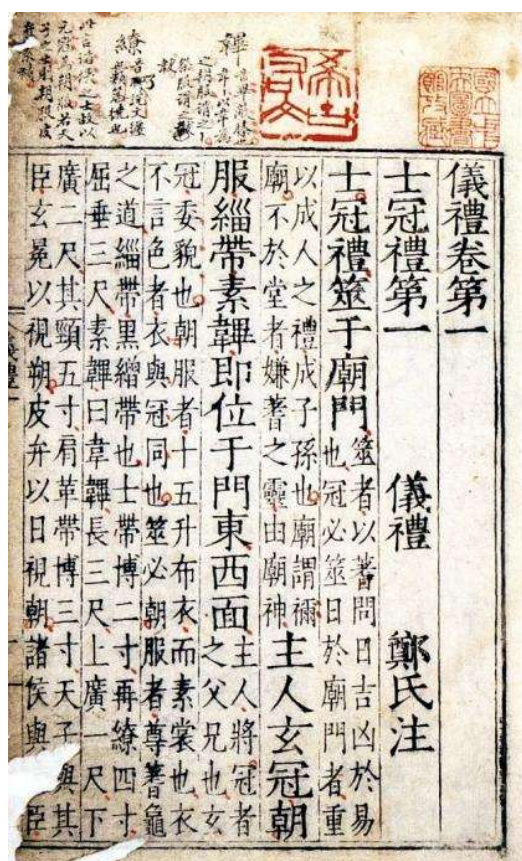 國立中
央圖書
館收藏
希古
右文
韠
繚
此言諸侯之士故以
儀禮卷第一
士冠禮第一 儀禮 鄭氏注
士冠禮筮于廟門
筮者以蓍問日吉凶於易
也冠必筮日於廟門者重
以成人之禮成子孫也廟謂禰
廟不於堂者嫌蓍之靈由廟神
主人玄冠朝
服緇帶素韠即位于門東西面
主人將冠者
之父兄也玄
冠委貌也朝服者十五升布衣而素裳也衣
不言色者衣與冠同也筮必朝服者尊蓍龜
之道緇帶黑繒帶也士帶博二寸再繚四寸
屈垂三尺素韠曰韋韠長三尺上廣一尺下
廣二尺其頸五寸肩革帶博三寸天子與其
臣玄冕以視朔皮弁以日視朝諸侯與臣